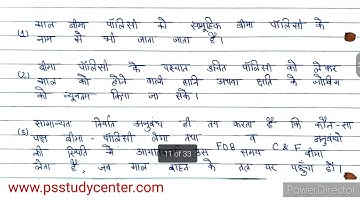 (1) माल बीमा पॉलिसी को सामूहिक बीमा पॉलिसी के
नाम से भी जाना जाता है।
(2) बीमा पॉलिसी के पश्चात उचित पॉलिसी को लेकर
माल को होने वाली हानि अथवा क्षति के जोखिम
को न्यूनतम किया जा सके।
(3) सामान्यतः निर्यात अनुबंध ही तय करता है कि कौन-सा
पक्ष बीमा - पॉलिसी लेगा तथा FOB व C & F अनुबंधो
की स्थिति में उस समय बीमा
लेता है, जब माल वाहन के तल पर पहुँचा हो।
11 of 33
www.psstudycenter.com
PowerDirector